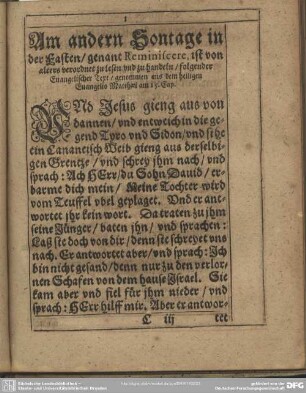 1
Am andern Sontage in
der Fasten / genant Reminiscere, ist von
alters verordnet zu lesen vnd zu handeln / folgender
Euangelischer Text / genommen aus dem heiligen
Euangelio Matthæi am 15. Cap.
VNd Jesus gieng aus von
dannen / vnd entweich in die ge-
gend Tyro vnd Sidon / vnd sihe
ein Cananeisch Weib gieng aus derselbi-
gen Grentze / vnd schrey jhm nach / vnd
sprach: Ach HErr / du Sohn Dauid / er-
barme dich mein / Meine Tochter wird
vom Teuffel vbel geplaget. Vnd er ant-
wortet jhr kein wort. Da traten zu jhm
seine Jünger / baten jhn / vnd sprachen:
Laß sie doch von dir / denn sie schreyet vns
nach. Er antwortet aber / vnd sprach: Ich
bin nicht gesand / denn nur zu den verlor-
nen Schafen von dem hause Israel. Sie
kam aber vnd fiel für jhm nieder / vnd
sprach: HErr hilff mir. Aber er antwor-
C iij
tet